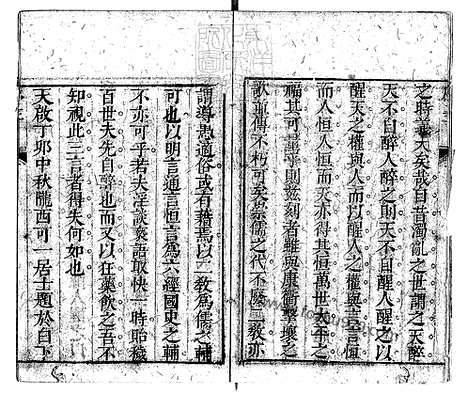 之時葢大矣哉自昔濁亂之世謂之天醉
天不自醉人醉之則天不自醒人醒之以
醒天之權與人而以醒人之權與言言恒
而人恒人恒而天亦得其恒萬世太平之
福其可量乎則茲刻者雖與康衢擊壤之
歌並傳不朽可矣崇儒之代不廢二教亦
謂導愚適俗或有藉焉以二教爲儒之輔
可也以明言通言恒言爲六經國史之輔
不亦可乎若夫淫談褻語取快一時貽穢
百世夫先自醉也而又以狂藥飲人吾不
知視此三言者得失何如也
天啟丁卯中秋隴西可一居士題於白下